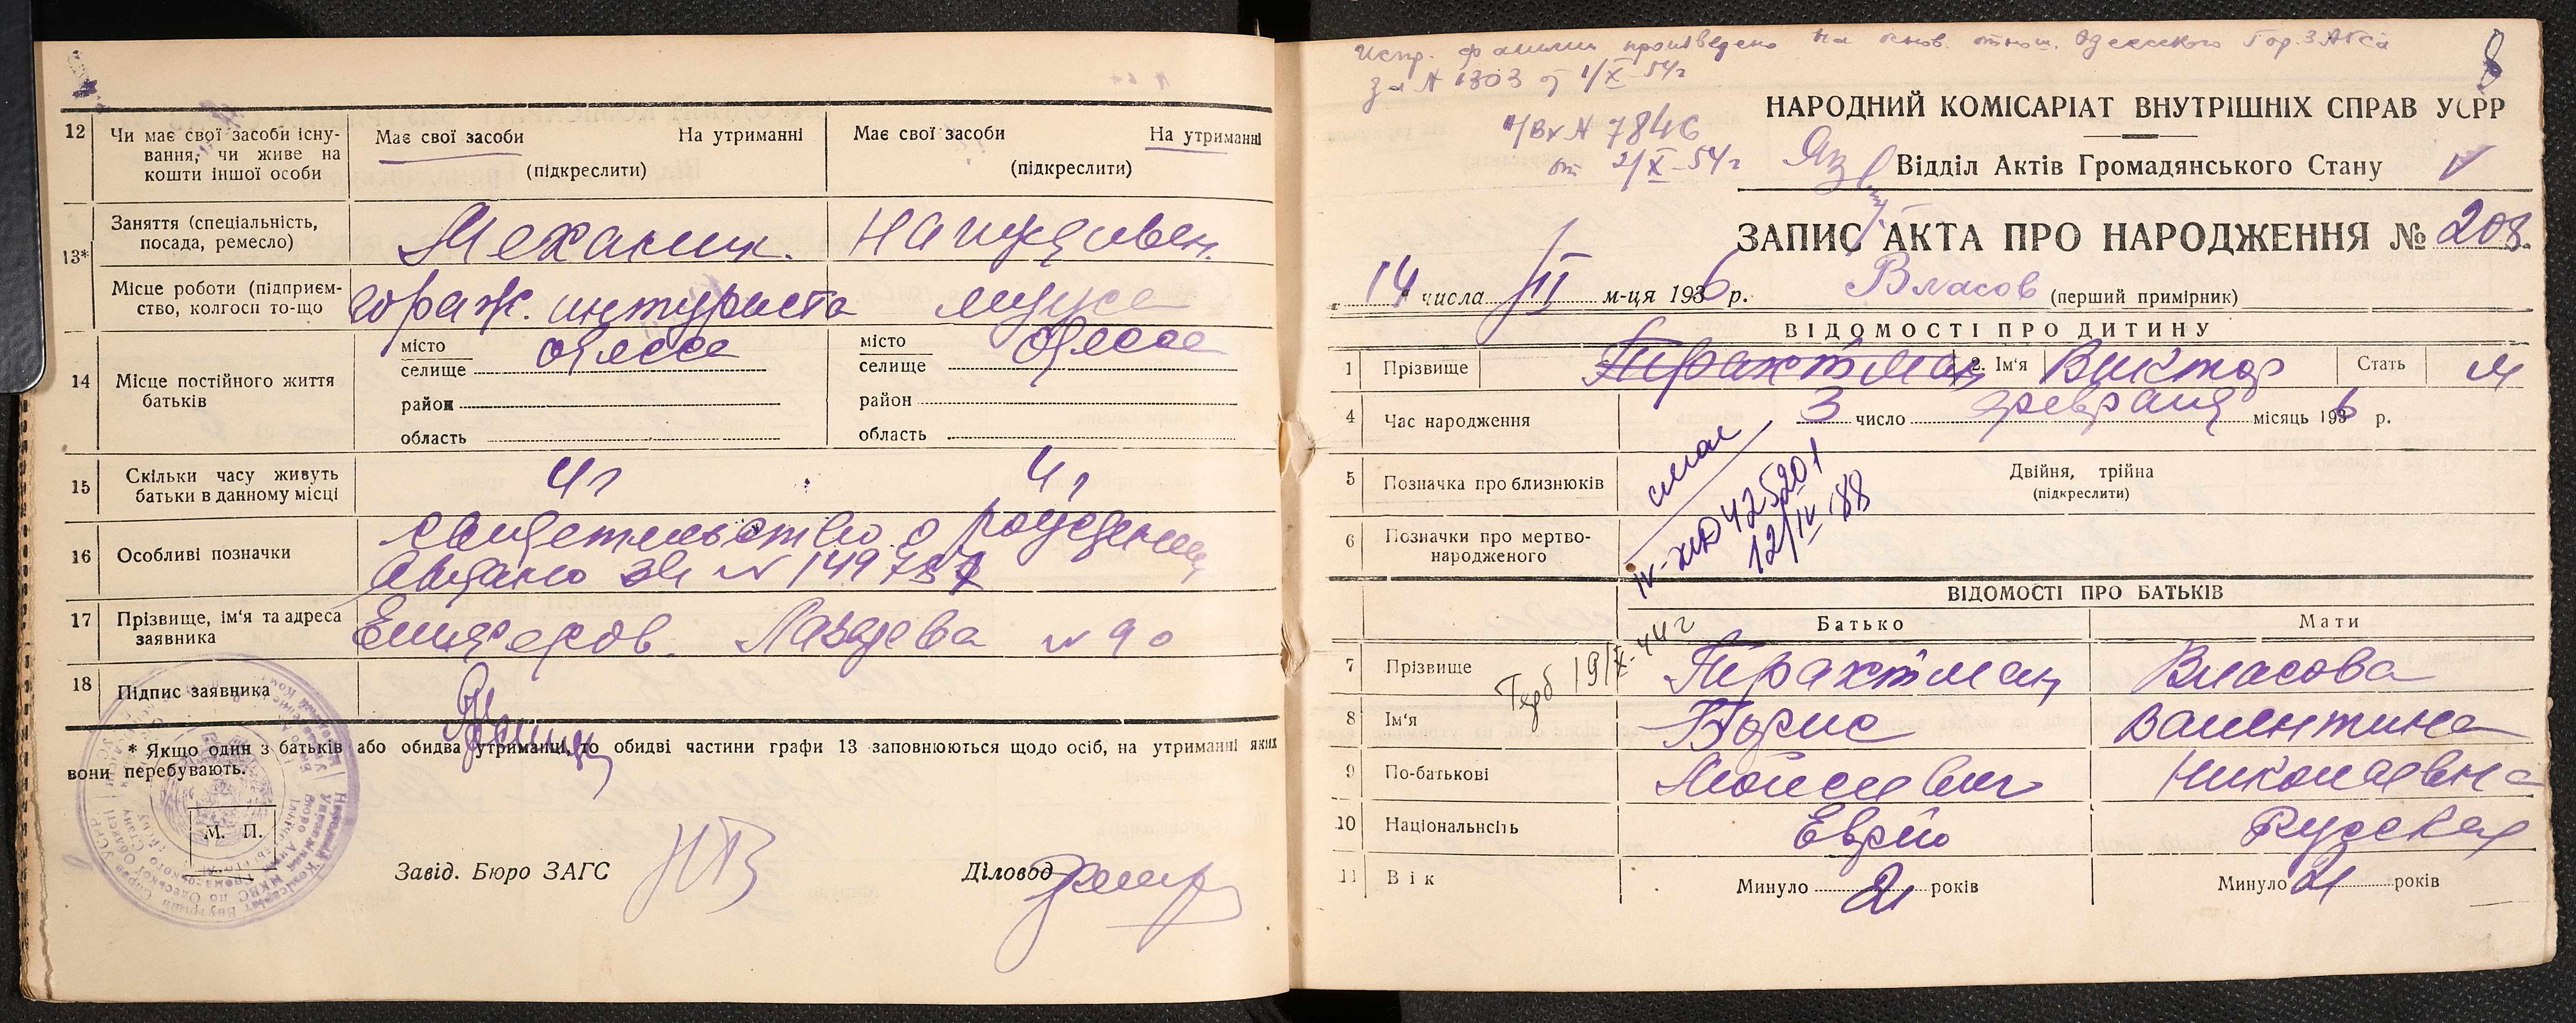 12 Чи має свої засоби існування, чи живе на кошти іншої особи
Має свої засоби На утриманні
(підкреслити)
Має свої засоби На утриманні
(підкреслити)
13* Заняття (спеціальність, посада, ремесло)
Механик. На иждивен.
Місце роботи (підприємство, колгосп то-що
гараж. интуриста мужа
14 Місце постійного життя батьків
місто
селище Одесса
район
область
місто
селище Одесса
район
область
15 Скільки часу живуть батьки в данному місці
4 г 4 г
16 Особливі позначки
свидетельство о рождении
выдано за №
17 Прізвище, ім'я та адреса заявника
Лазарева № 90
18 Підпис заявника
* Якщо один з батьків або обидва утриманці, то обидві частини графи 13 заповнюються щодо осіб, на утриманні яких
вони перебувають.
М. П.
Завід. Бюро ЗАГС
Діловод
Испр. фамилии произведено на основ. отнош. Одесского Гор. ЗАГСа
за № 1303 от 1/X-54г
8
н/Вх № 7846
от 2/X-54г
НАРОДНИЙ КОМІСАРІАТ ВНУТРІШНІХ СПРАВ УСРР
Відділ Актів Громадянського Стану
ЗАПИС АКТА ПРО НАРОДЖЕННЯ № 208.
14 числа III м-ця 1936 р.
Власов (перший примірник)
ВІДОМОСТІ ПРО ДИТИНУ
1 Прізвище Трахтман 2. Ім'я Виктор Стать М
4 Час народження 3 число февраля місяць 1936 р.
5 Позначка про близнюків
Двійня, трійна
(підкреслити)
6 Позначки про мертвонародженого
IV-ЖД 425201
12/IV-88
ВІДОМОСТІ ПРО БАТЬКІВ
Батько Мати
7 Прізвище Трахтман Власова
19/X-44г
8 Ім'я Борис Валентина
9 По-батькові Моисеевич Николаевна
10 Національнсіть Еврей Русская
11 Вік Минуло 21 років Минуло 21 років